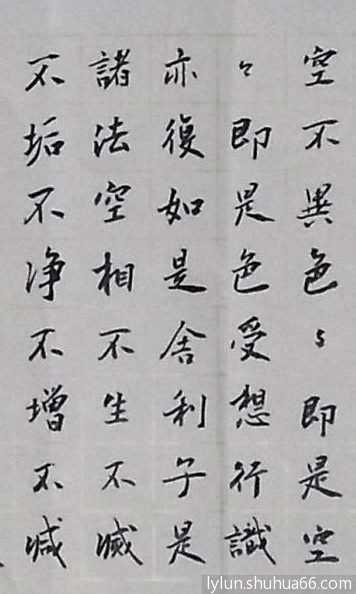 空不異色々即是空
々即是色受想行識
亦復如是舍利子是
諸法空相不生不滅
不垢不净不增不減
lylun.shuhua66.com